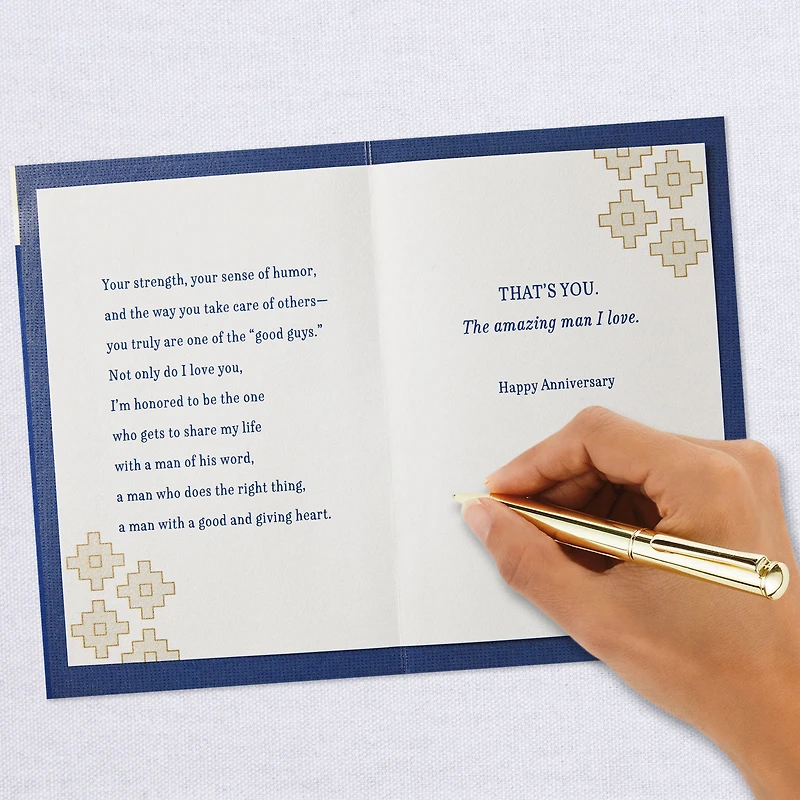 Your strength, your sense of humor,
and the way you take care of others—
you truly are one of the “good guys.”
Not only do I love you,
I’m honored to be the one
who gets to share my life
with a man of his word,
a man who does the right thing,
a man with a good and giving heart.
THAT’S YOU.
The amazing man I love.
Happy Anniversary